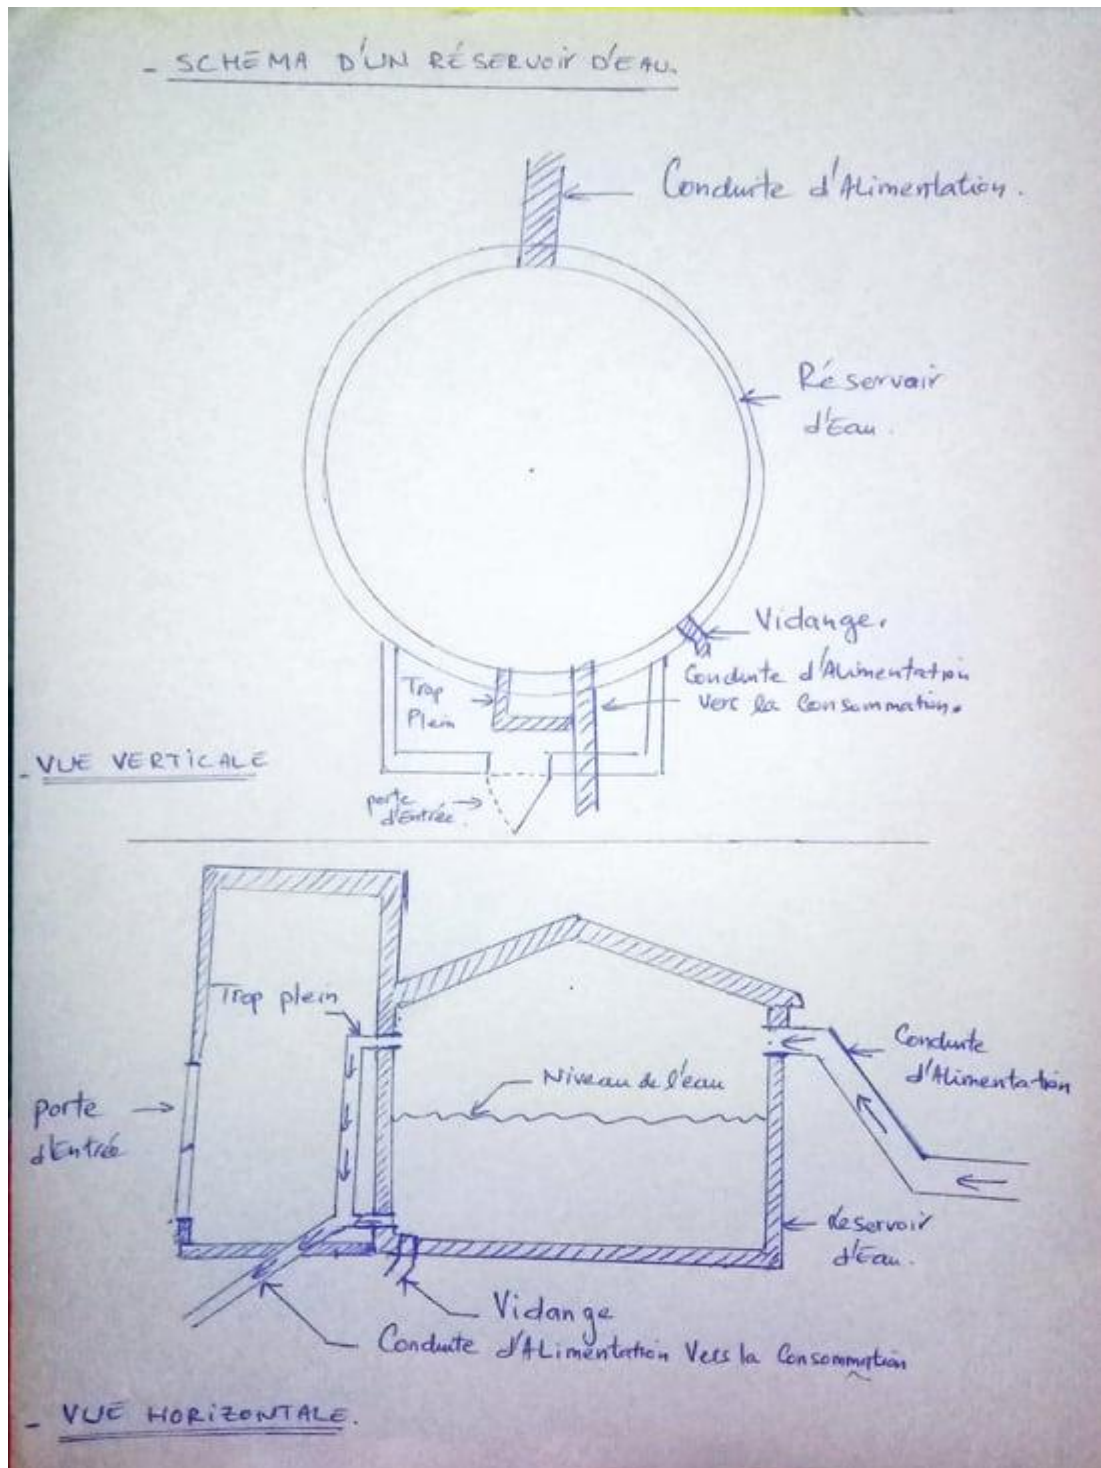 - SCHEMA D'UN RÉSERVOIR D'EAU.
Conduite d'Alimentation.
Réservoir
d'Eau.
Vidange.
Conduite d'Alimentation
vers la Consommation.
Trop
Plein
- VUE VERTICALE
porte
d'Entrée.
Trop plein
Niveau de l'eau
Conduite
d'Alimentation
porte
d'Entrée
Réservoir
d'Eau.
Vidange
Conduite d'Alimentation Vers la Consommation
- VUE HORIZONTALE.